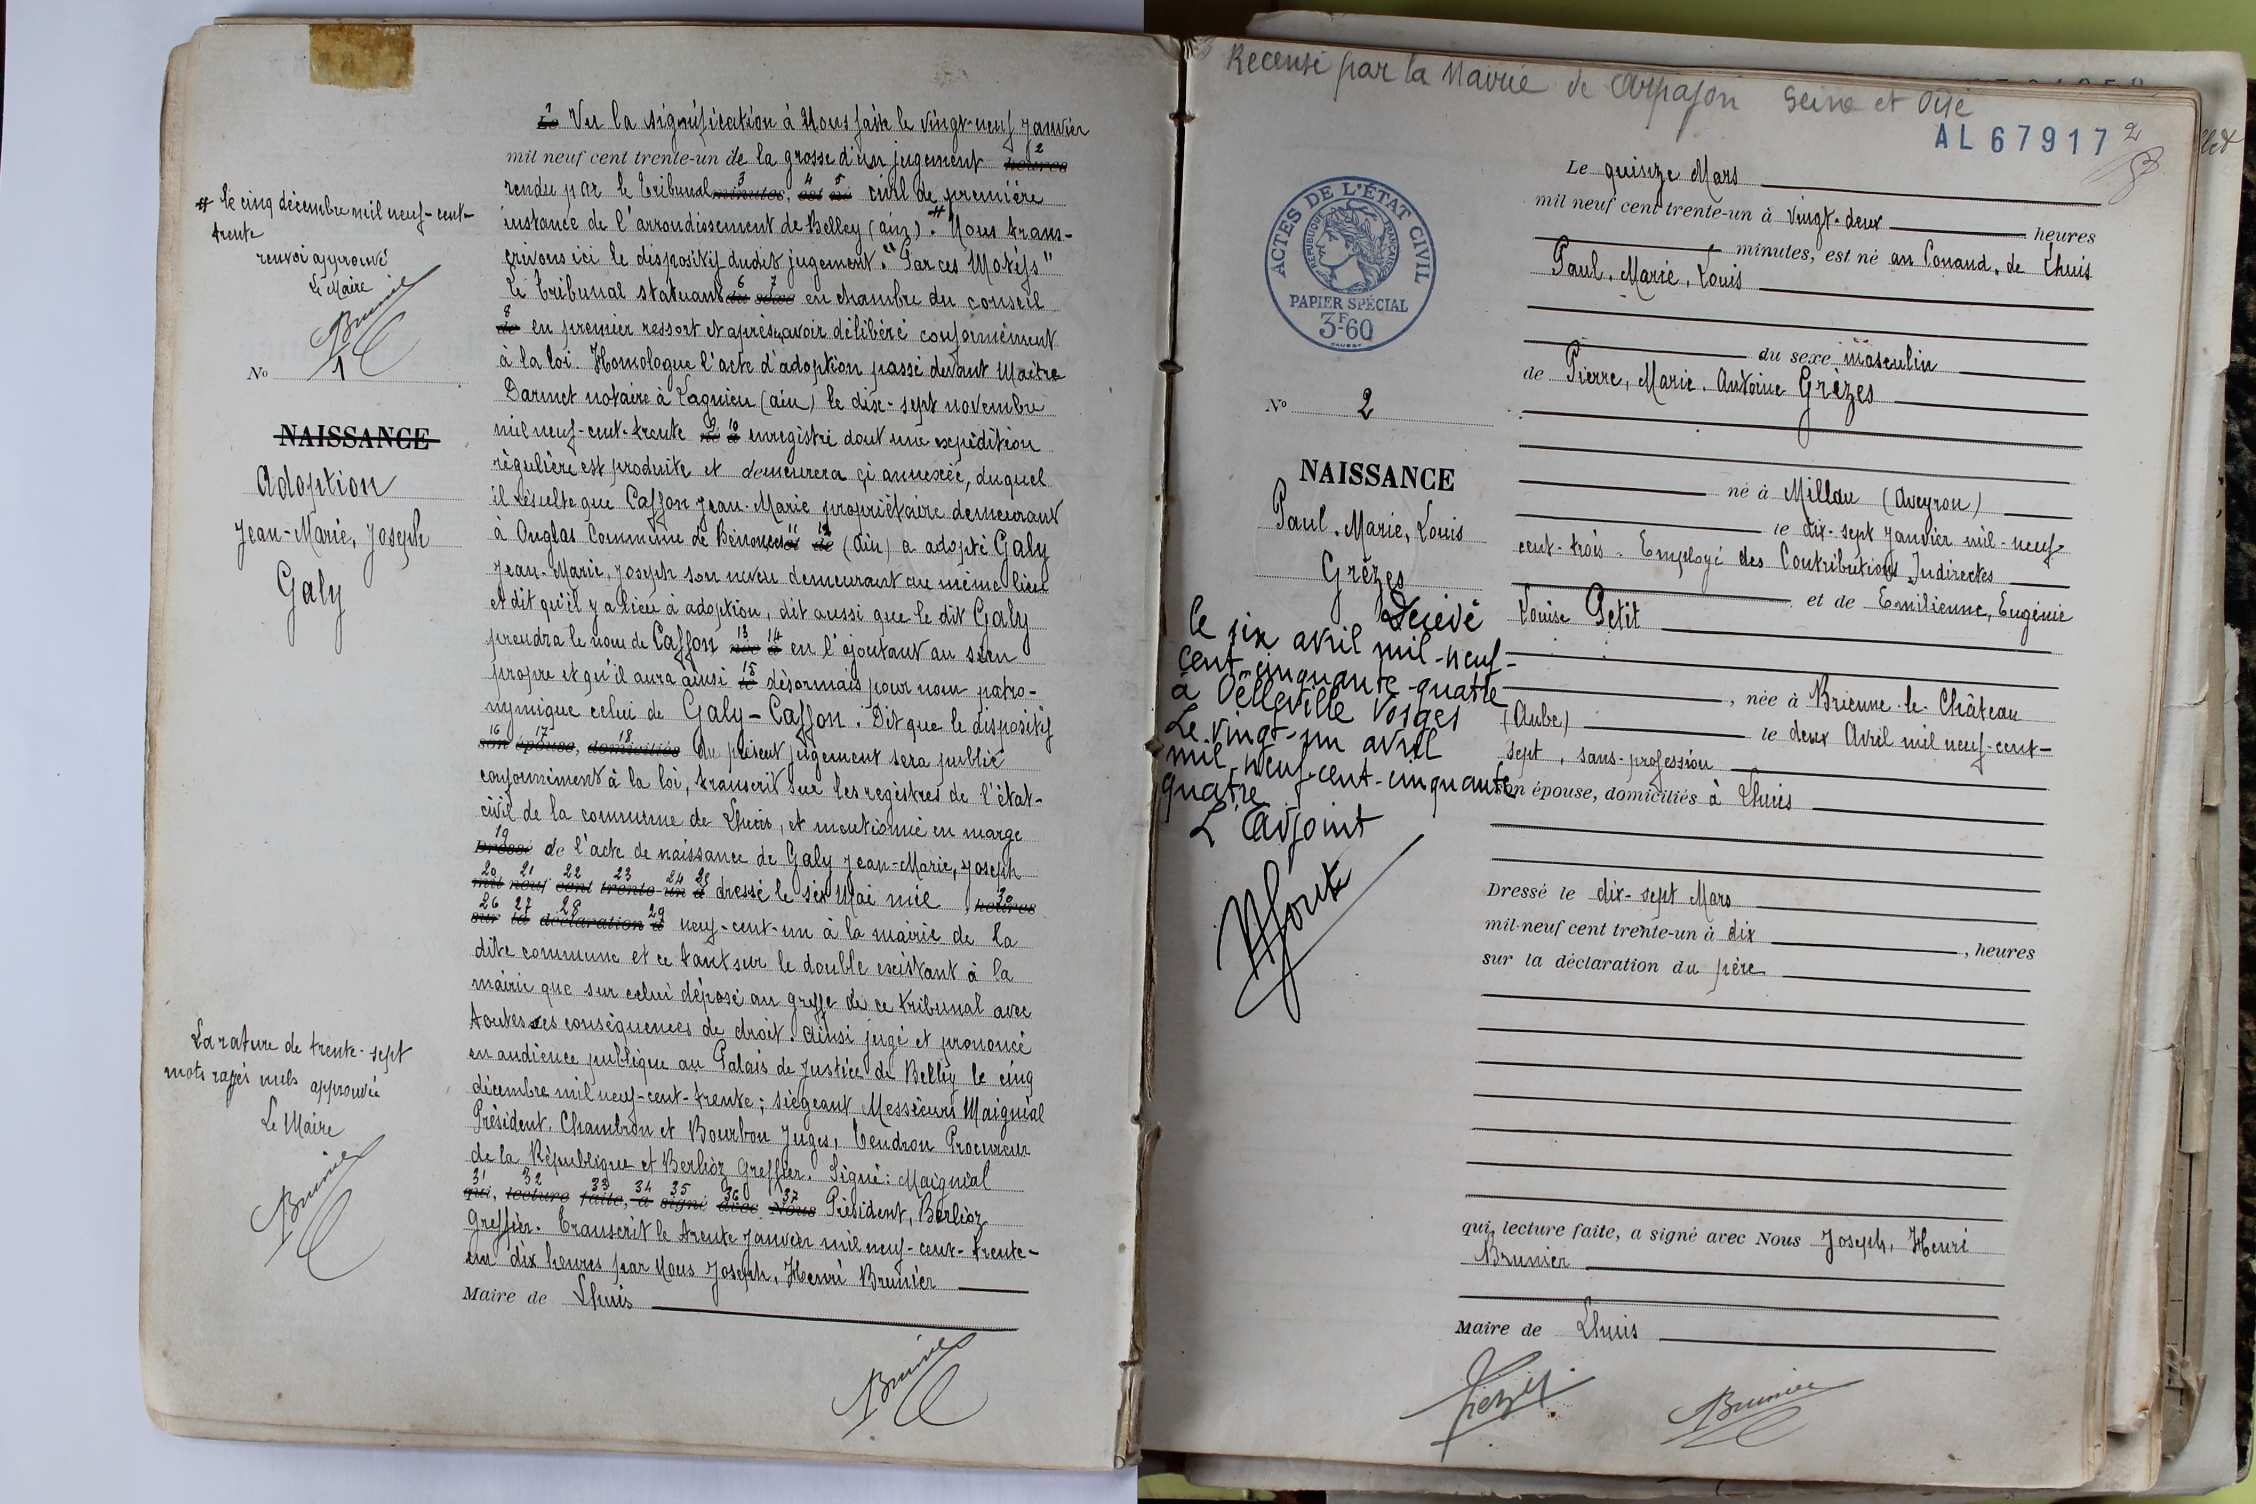 # le cinq décembre mil neuf-cent-
trente
renvoi approuvé
Le Maire
Brunier
No 1
NAISSANCE
Adoption
Jean-Marie, Joseph
Galy
La rature de trente-sept
mots rayés nuls approuvée
Le Maire
Brunier
1 Le Vu la signification à Nous faite le vingt-neuf janvier
mil neuf cent trente-un de la grosse d'un jugement 2 heures
rendu par le tribunal 3 minutes, 4 est 5 né civil de première
instance de l'arrondissement de Belley (ain). # Nous trans-
crivons ici le dispositif dudit jugement. "Par ces Motifs"
Le tribunal statuant 6 du 7 sexe en chambre du conseil
8 de en premier ressort et après avoir délibéré conformément
à la loi. Homologue l'acte d'adoption passé devant Maître
Darmet notaire à Lagnieu (ain) le dix-sept novembre
mil neuf-cent-trente 9 né 10 à enregistré dont une expédition
régulière est produite et demeurera çi annexée, duquel
il résulte que Caffon Jean-Marie propriétaire demeurant
à Onglas Commune de Bénonces 11 et 12 de (ain) a adopté Galy
Jean-Marie, Joseph son neveu demeurant au même lieu
et dit qu'il y a lieu à adoption, dit aussi que le dit Galy
prendra le nom de Caffon 13 née 14 à en l'ajoutant au sien
propre et qu'il aura ainsi 15 le désormais pour nom patro-
nymique celui de Galy-Caffon. Dit que le dispositif
16 son 17 épouse, 18 domiciliés du présent jugement sera publié
conformément à la loi, transcrit sur les registres de l'état-
civil de la commune de Lhuis, et mentionné en marge
19 Dressé de l'acte de naissance de Galy Jean-Marie, Joseph
20 mil 21 neuf 22 cent 23 trente- 24 un 25 à dressé le six Mai mil 30 heures
26 sur 27 la 28 déclaration 29 d neuf-cent-un à la mairie de la
dite commune et ce tant sur le double existant à la
mairie que sur celui déposé au greffe de ce tribunal avec
toutes ses conséquences de droit. Ainsi jugé et prononcé
en audience publique au Palais de Justice de Belley le cinq
décembre mil neuf-cent-trente; siégeant Messieurs Maignial
Président. Chambron et Bourbon Juges, Gendron Procureur
de la République et Berlioz Greffier. Signé: Maignial
31 qui, 32 lecture 33 faite, 34 a 35 signé 36 avec 37 Nous Président, Berlioz
Greffier. Transcrit le trente janvier mil neuf-cent-trente-
un dix heures par Nous Joseph, Henri Brunier
Maire de Lhuis
Brunier
Recensé par la Mairie de Arpajon Seine et Oise
AL 67917
2
ACTES DE L'ÉTAT CIVIL
RÉPUBLIQUE FRANÇAISE
PAPIER SPÉCIAL
3F-60
No 2
NAISSANCE
Paul, Marie, Louis
Grèzes
Décédé
le six avril mil-neuf-
cent-cinquante-quatre
à Oëlleville Vosges
Le vingt-un avril
mil-neuf-cent-cinquante
quatre
L'Adjoint
Le quinze Mars
mil neuf cent trente-un à vingt-deux heures
minutes, est né au Conand, de Lhuis
Paul, Marie, Louis
du sexe masculin
de Pierre, Marie, Antoine Grèzes
né à Millau (Aveyron)
le dix-sept janvier mil-neuf
cent-trois. Employé des Contributions Indirectes
et de Emilienne, Eugénie
Louise Petit
, née à Brienne-le-Château
(Aube) le deux Avril mil neuf-cent-
sept, sans-profession
son épouse, domiciliés à Lhuis
Dressé le dix-sept Mars
mil-neuf cent trente-un à dix , heures
sur la déclaration du père
qui, lecture faite, a signé avec Nous Joseph, Henri
Brunier
Maire de Lhuis
Grèzes
Brunier